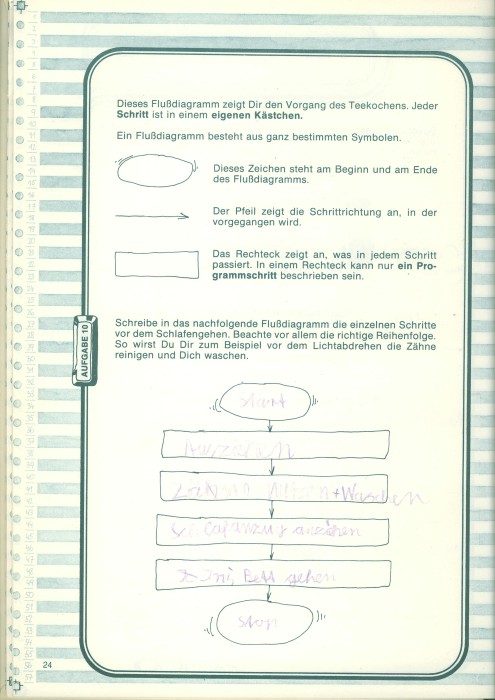 Dieses Flußdiagramm zeigt Dir den Vorgang des Teekochens. Jeder
Schritt ist in einem eigenen Kästchen.
Ein Flußdiagramm besteht aus ganz bestimmten Symbolen.
Dieses Zeichen steht am Beginn und am Ende
des Flußdiagramms.
Der Pfeil zeigt die Schrittrichtung an, in der
vorgegangen wird.
Das Rechteck zeigt an, was in jedem Schritt
passiert. In einem Rechteck kann nur ein Pro-
grammschritt beschrieben sein.
AUFGABE 10
Schreibe in das nachfolgende Flußdiagramm die einzelnen Schritte
vor dem Schlafengehen. Beachte vor allem die richtige Reihenfolge.
So wirst Du Dir zum Beispiel vor dem Lichtabdrehen die Zähne
reinigen und Dich waschen.
Start
Ausziehen
+Waschen
anziehen
Bett gehen
Stop
24